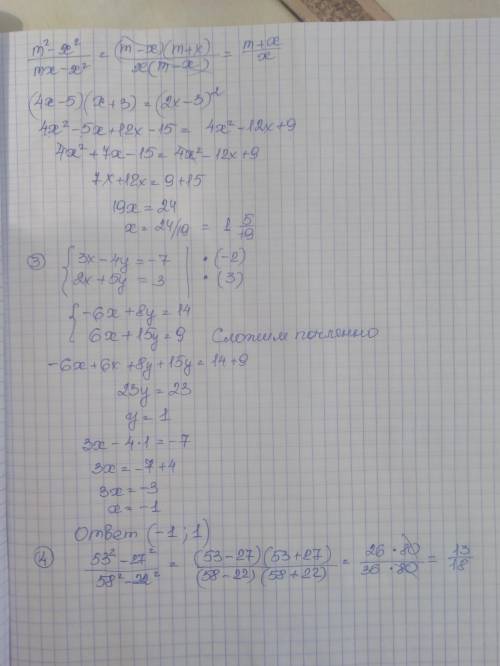 (m² - x²)/(mx - x²) = ((m-x)(m+x))/(x(m-x)) = (m+x)/x
(4x-5)(x+3) = (2x-3)²
4x² - 5x + 12x - 15 = 4x² - 12x + 9
4x² + 7x - 15 = 4x² - 12x + 9
7x + 12x = 9 + 15
19x = 24
x = 24/19 = 1 5/19
③ { 3x - 4y = -7 | · (-2)
2x + 5y = 3 | · (3)
{ -6x + 8y = 14
6x + 15y = 9 Сложим почленно
-6x + 6x + 8y + 15y = 14 + 9
23y = 23
y = 1
3x - 4·1 = -7
3x = -7 + 4
3x = -3
x = -1
Ответ (-1; 1)
④ (53² - 27²)/(58² - 22²) = ((53-27)(53+27))/((58-22)(58+22)) = (26·80)/(36·80) = 13/18